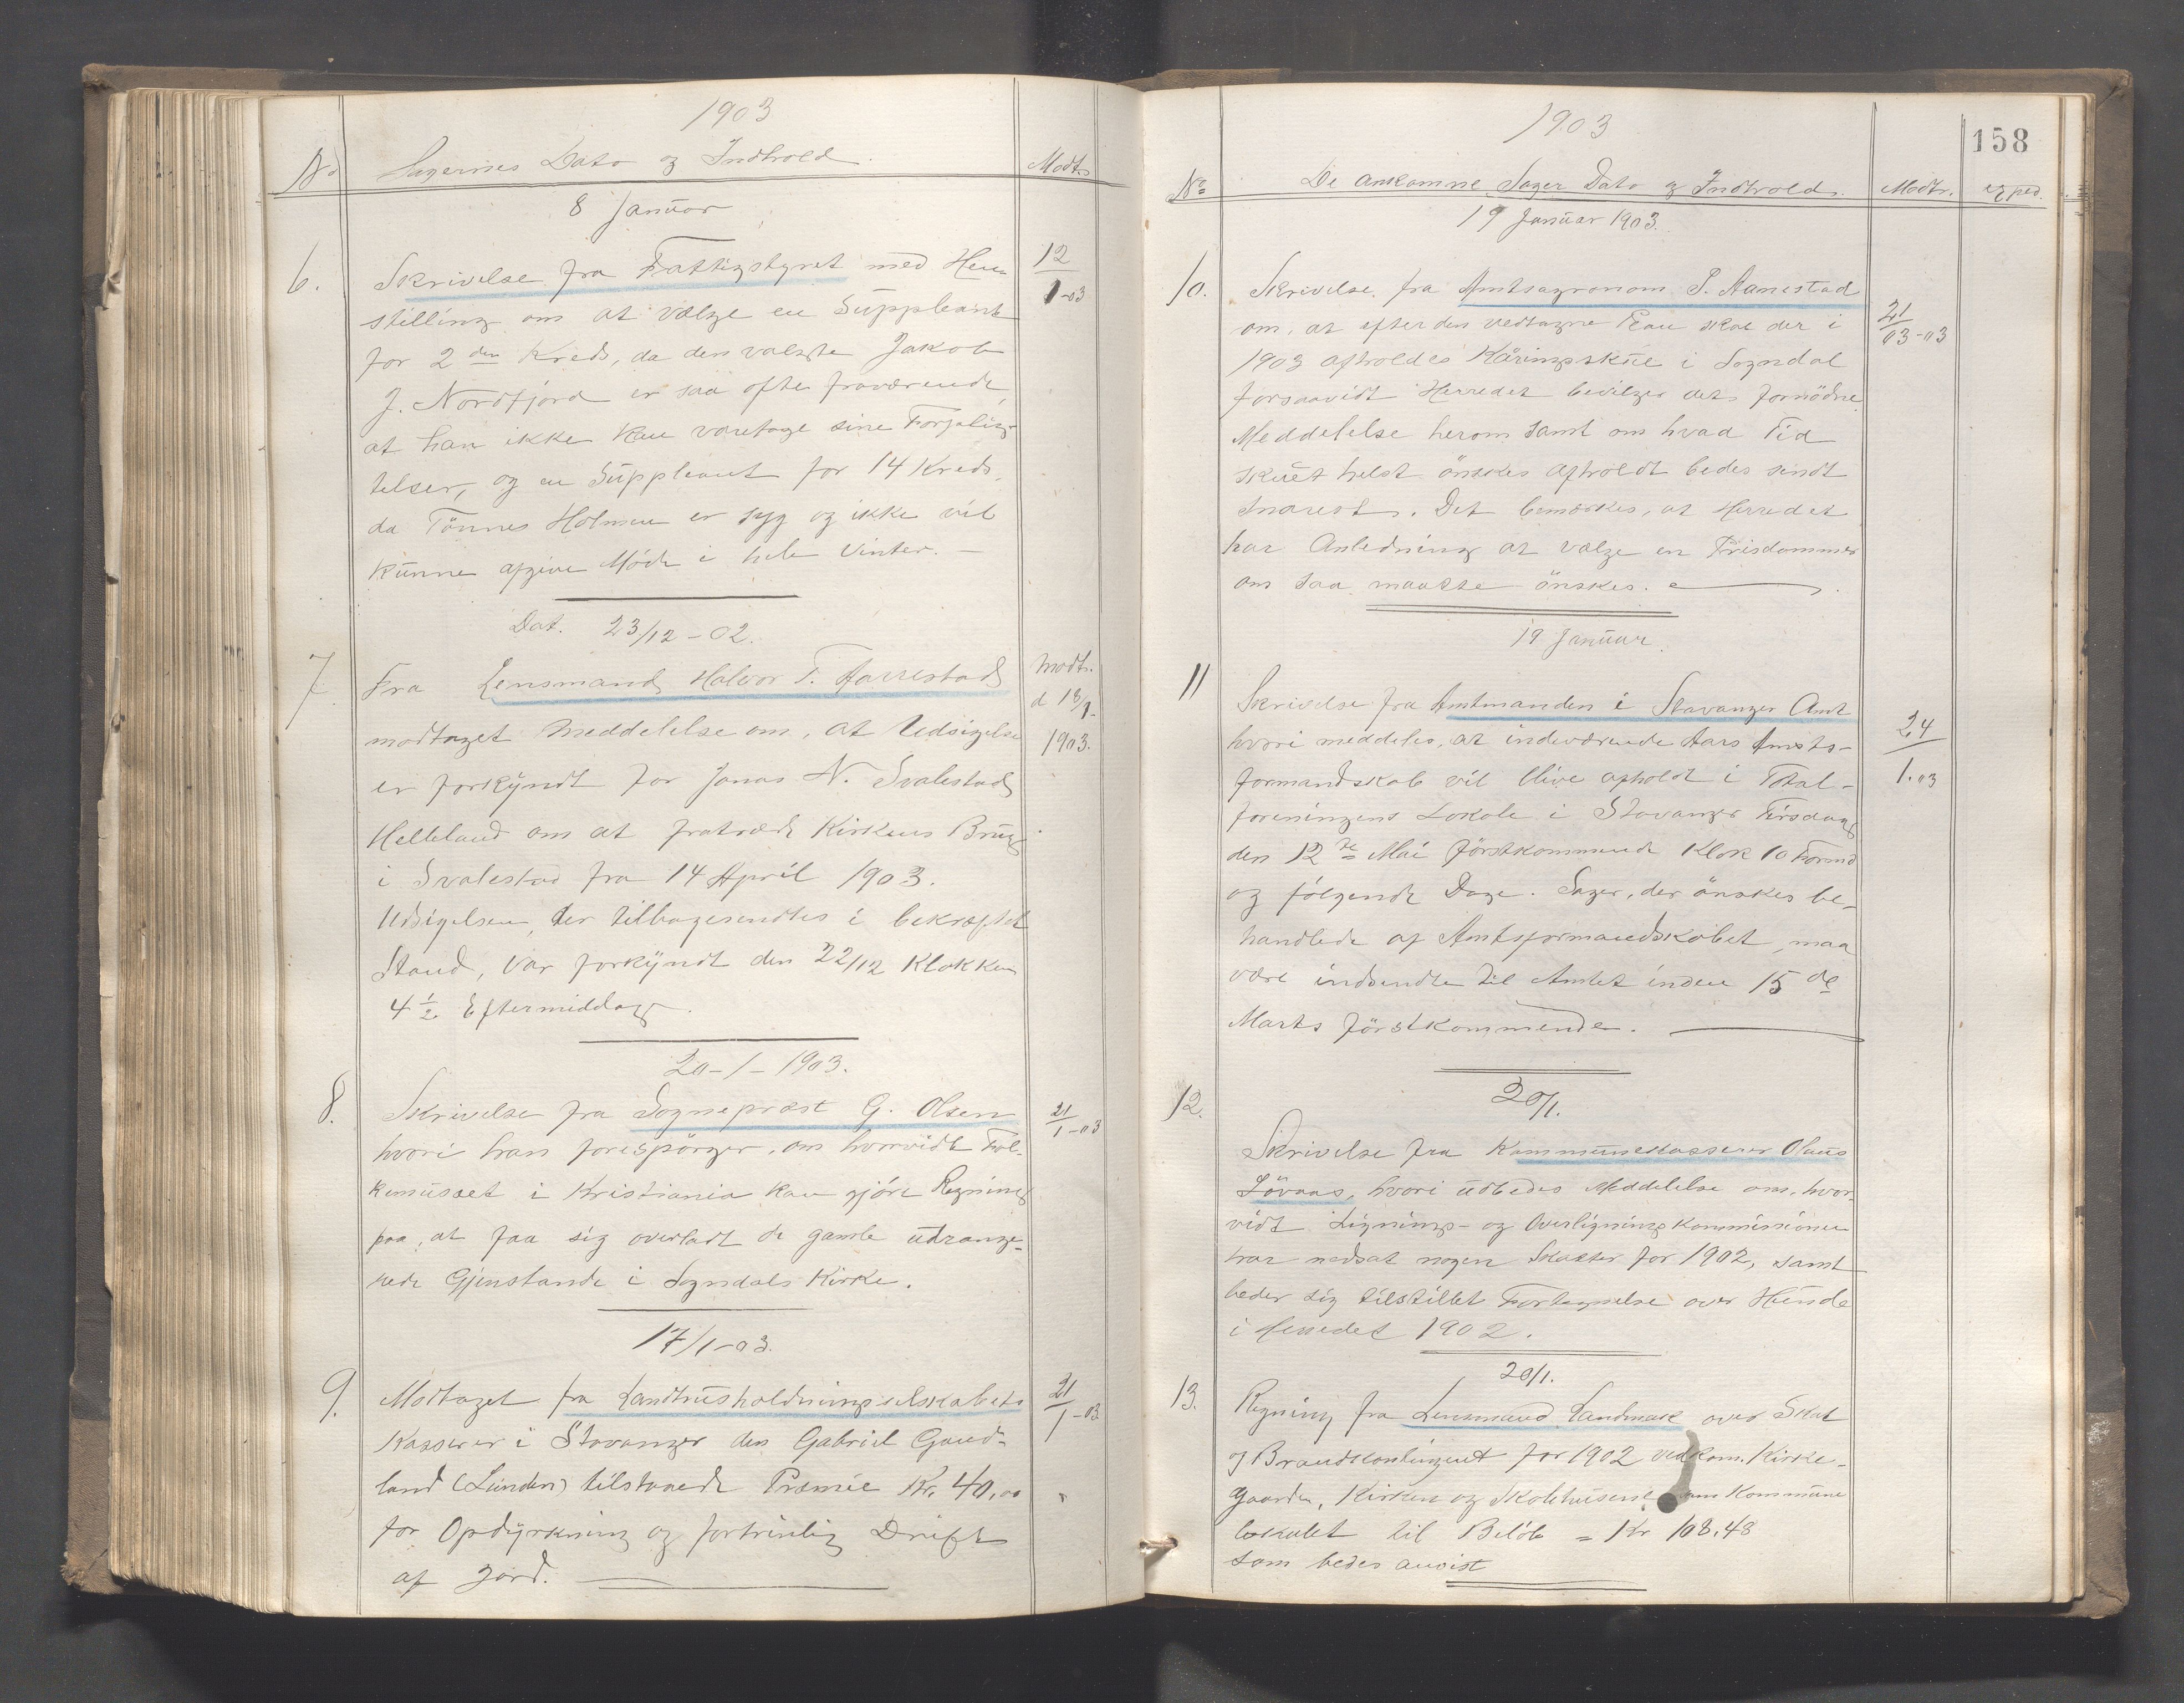 1903
No Sagernes Dato og Indhold. Modt.
8 Januar
6. Skrivelse fra Fattigstyret med Hen- 12/1-03
stilling om at vælge en Suppleant
for 2den Kreds, da den valgte Jakob
J. Nordfjord er saa ofte fraværende,
at han ikke kan varetage sine Forplig-
telser, og en Suppleant for 14 Kreds,
da Tönnes Holmen er syg og ikke vil
kunne afgive Möde i hele Vinter. —
Dat. 23/12-02.
7. Fra Lensmand Halvor T. Aarrestad Modt. d 18/1- 1903.
modtaget Meddelelse om, at Udsigelse
er forkyndt for Jonas N. Svalestad
Helleland om at fratræde Kirkens Brug
i Svalestad fra 14 April 1903.
Udsigelsen, der tilbagesendtes i bekræftet
Stand, var forkyndt den 22/12 Klokken
4½ Eftermiddag.
20-1-1903.
8. Skrivelse fra Sogneprest G. Olsen 21/1-03
hvori han forespörger, om hvorvidt Fol-
kemuseet i Kristiania kan gjöre Regning
paa, at faa sig overladt de gamle udrange-
rede Gjenstande i Sogndals Kirke.
17/1-03.
9. Modtaget fra Landhusholdningsselskabets 21/1-03
Kasserer i Stavanger den Gabriel Gaud-
land (Lunden) tilstaaede Præmie Kr. 40,00
for Opdyrkning og fortrinlig Drift
af Jord. —
1903
158
No De ankomne Sager Dato og Indhold. Modt. exped.
19 Januar 1903.
10. Skrivelse fra Amtsagronom P. Aanestad 21/03-03
om, at efter den vedtagne Plan skal der i
1903 afholdes Kåringsskue i Sogndal
forsaavidt Herredet bevilger dets fornödne.
Meddelelse herom samt om hvad Tid
skuet helst önskes afholdt bedes sendt
snarest. Det bemærkes, at Herredet
har Anledning at vælge en Prisdommer
om saa maatte önskes.
19 Januar.
11 Skrivelse fra Amtmanden i Stavanger Amt 24/1.03
hvori meddeles, at indeværende Aars Amts-
formandskab vil blive afholdt i Total-
foreningens Lokale i Stavanger Tirsdag
den 12te Mai förstkommende Klok 10 Formd
og fölgende Dage. Sager, der önskes be-
handlede af Amtsformandskabet, maa
være indsendte til Amtet inden 15de
Marts förstkommende. —
20/1.
12. Skrivelse fra Kommunekasserer Olaus
Lövaas, hvori udbedes Meddelelse om, hvor-
vidt Ligning- og Overligningskommissionen
har nedsat nogen Skatter for 1902, samt
beder sig tilstillet Fortegnelse over Hunde
i Herredet 1902.
20/1.
13. Regning fra Lensmand Landmark over Skat
og Brandkontingent for 1902 vedkom. Kirke-
gaarden, Kirken og Skolehusene Kommune
lokalet til Belöb = Kr 108.48
som bedes anvist